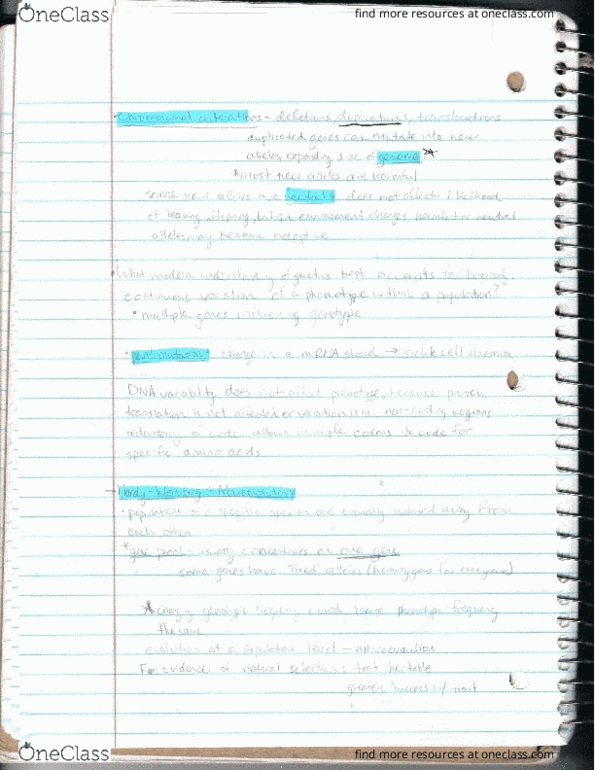 OneClass
find more resources at oneclass.com
Chromosomal alterations - deletions, duplications, translocations
duplicated genes can mutate into new
alleles, expanding size of genome
*most new alleles are harmful
some new alleles are neutral: does not affect likelihood
of leaving offspring, but if environment changes, harmful or neutral
alleles may become adaptive
What modern understanding of genetics best accounts for broad
continuous variation of a phenotype within a population?"
• multiple genes influencing genotype
• point mutations: change in a mRNA strand → sickle cell anemia
DNA variability does not affect phenotype, because protein
translation is not affected or variation is in non-coding regions
redundancy of code allows multiple codons to code for
specific amino acids
Hardy - Weinberg +
• populations of a specific species are usually isolated away from
each other
*gene pool - usually concentrates on one gene
some genes have "fixed" alleles (homozygous for everyone)
*changing genotypic frequency could leave phenotypic frequency
the same
evolution at a population level - microevolution
For evidence of natural selection: trait heritable
greater success w/ trait
OneClass
find more resources at oneclass.com